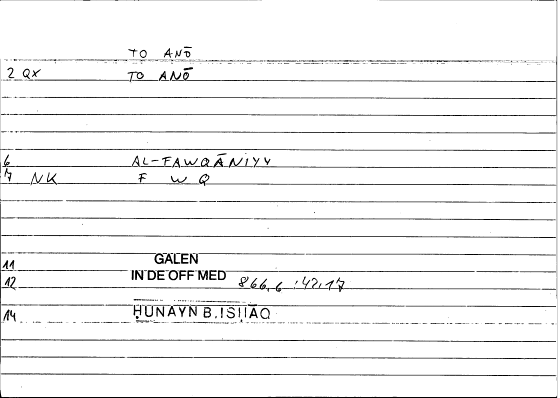 TO ANŌ
2 QX TO ANŌ
6 AL-FAWQĀNIYY
7 NK F W Q
11 GALEN
12 IN DE OFF MED 866,6 :42,17
14 ḤUNAYN B.ISḤĀQ